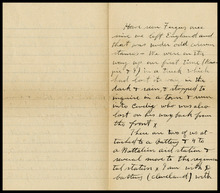 Have seen Fergus once
since we left England and
that was under odd circum-
stances. We were on the
way up our first time (Kas-
per & I) in a truck which
had lost it way in the
dark & rain, & stopped to
inquire in a town & ran
into Covdig who was also
lost on his way back from
the front &
There are two of us at
tached to a battery & 4 to
a Battalion aid station &
several more to the regimen-
tal station. I am with
battery (Cleveland) with